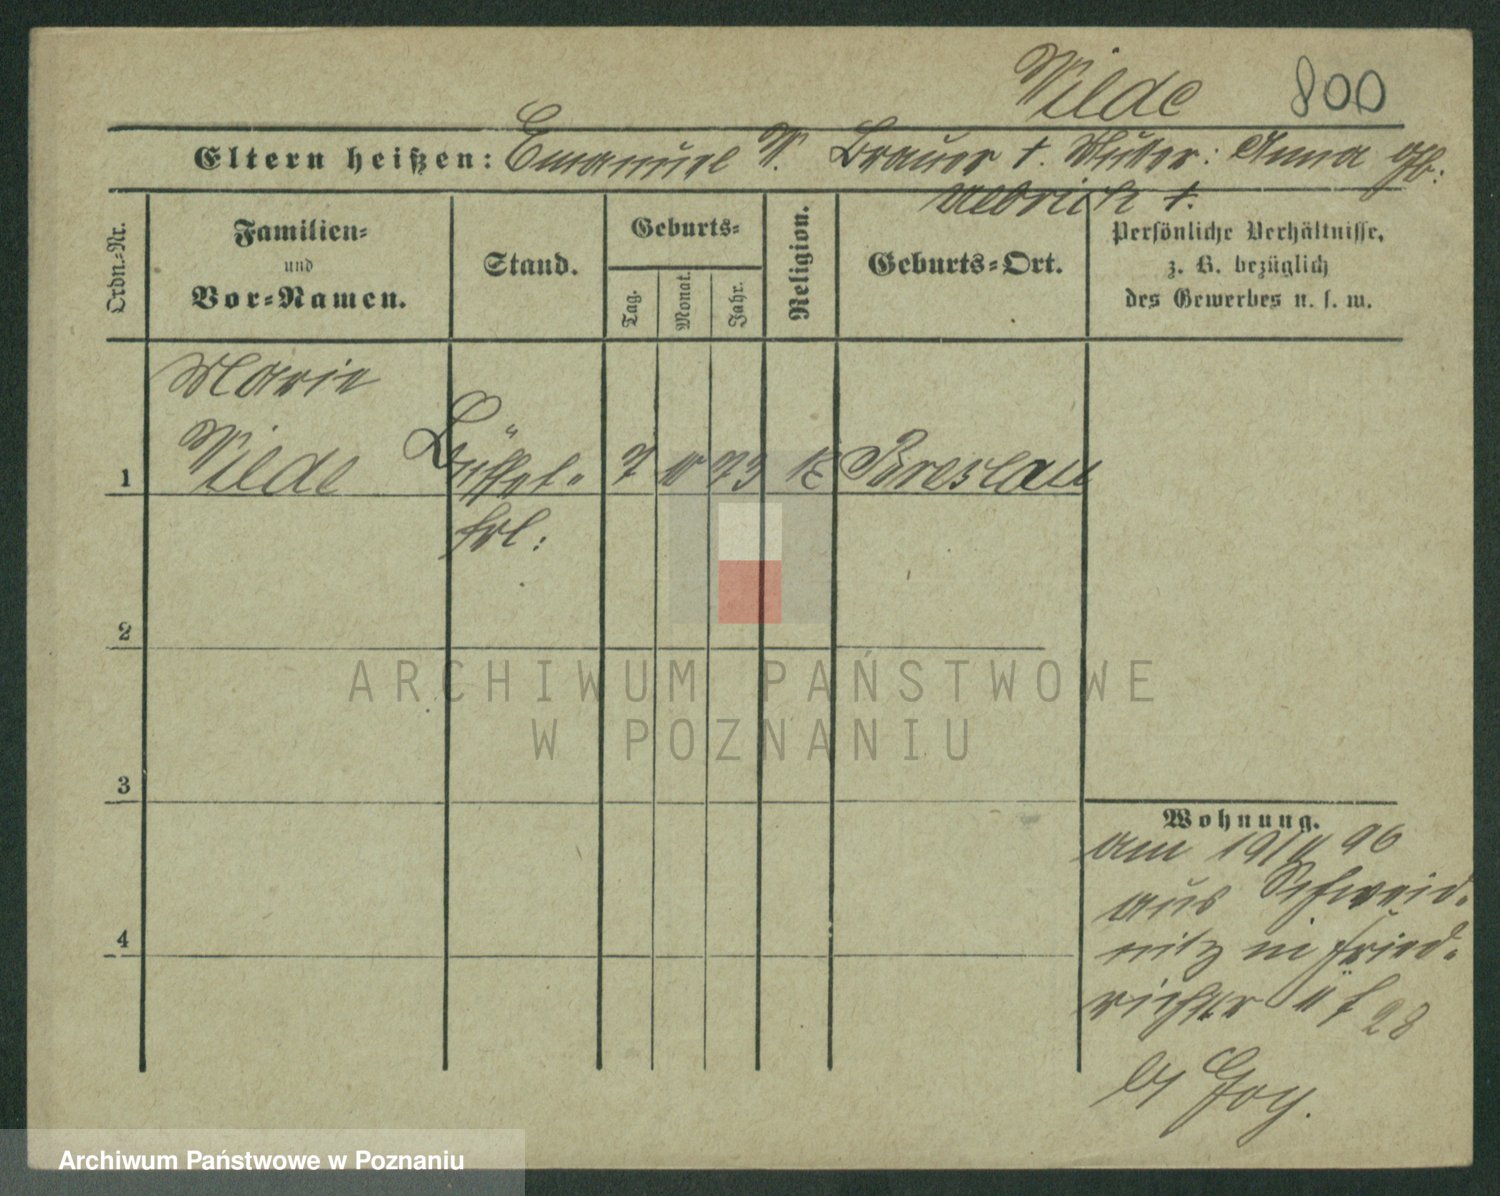 Wilde 800
Eltern heißen: Emanuel W. Brauer †. Mutter: Anna gb:
Ulbrich †.
Ordn.-Nr.
Familien-
und
Vor-Namen.
Stand.
Geburts-
Tag.
Monat.
Jahr.
Religion.
Geburts-Ort.
Persönliche Verhältnisse,
z. B. bezüglich
des Gewerbes u. s. w.
Marie
1 Wilde Büffet- 7 10 73 K Breslau
frl:
2
3
4
Wohnung.
am 19/11 96
aus Schweid-
nitz in Fried-
28
ARCHIWUM PAŃSTWOWE
W POZNANIU
Archiwum Państwowe w Poznaniu